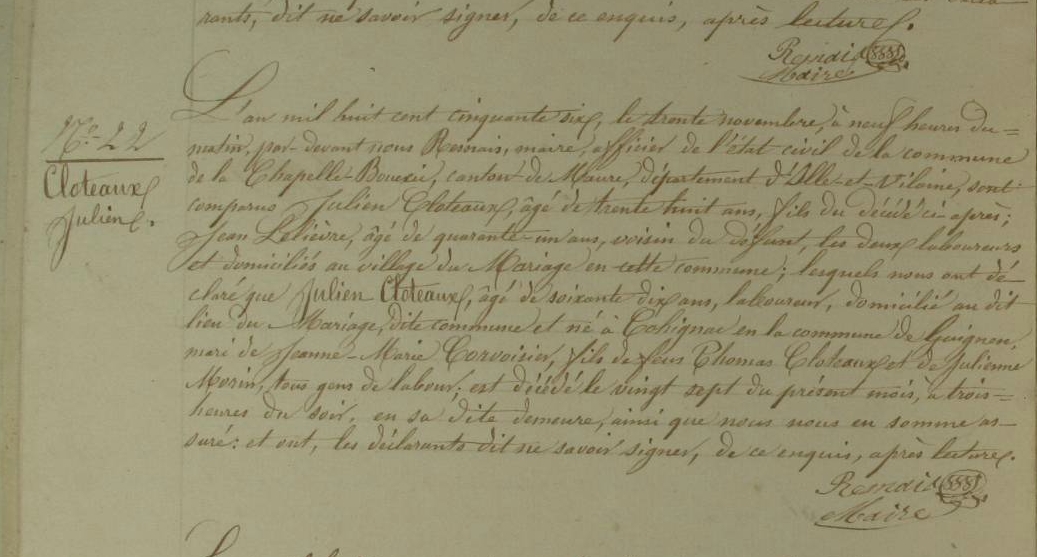 rants, dit ne savoir signer, de ce enquis, après lecture.
Remais
Maire
L'an mil huit cent cinquante six, le trente novembre, à neuf heures du=
matin, par-devant nous Remais, maire, officier de l'état civil de la commune
de la Chapelle-Bouexic, canton de Maure, département d'Ille-et-Vilaine, sont
comparus Julien Cloteaux, âgé de trente huit ans, fils du décédé ci-après;
Jean Lelièvre, âgé de quarante-un ans, voisin du défunt, les deux laboureurs
et domiciliés au village du Mariage en cette commune; lesquels nous ont dé-
claré que Julien Cloteaux, âgé de soixante dix ans, laboureur, domicilié au dit
lieu du Mariage, dite commune et né à Cohignac en la commune de Guignen,
mari de Jeanne-Marie Corvoisier, fils de feus Thomas Cloteaux et de Julienne
Morin, tous gens de labour; est décédé le vingt sept du présent mois, à trois=
heures du soir, en sa dite demeure, ainsi que nous nous en somme as-
suré: et ont, les déclarants dit ne savoir signer, de ce enquis, après lecture.
Remais
Maire
N.o 22
Cloteaux
Julien.